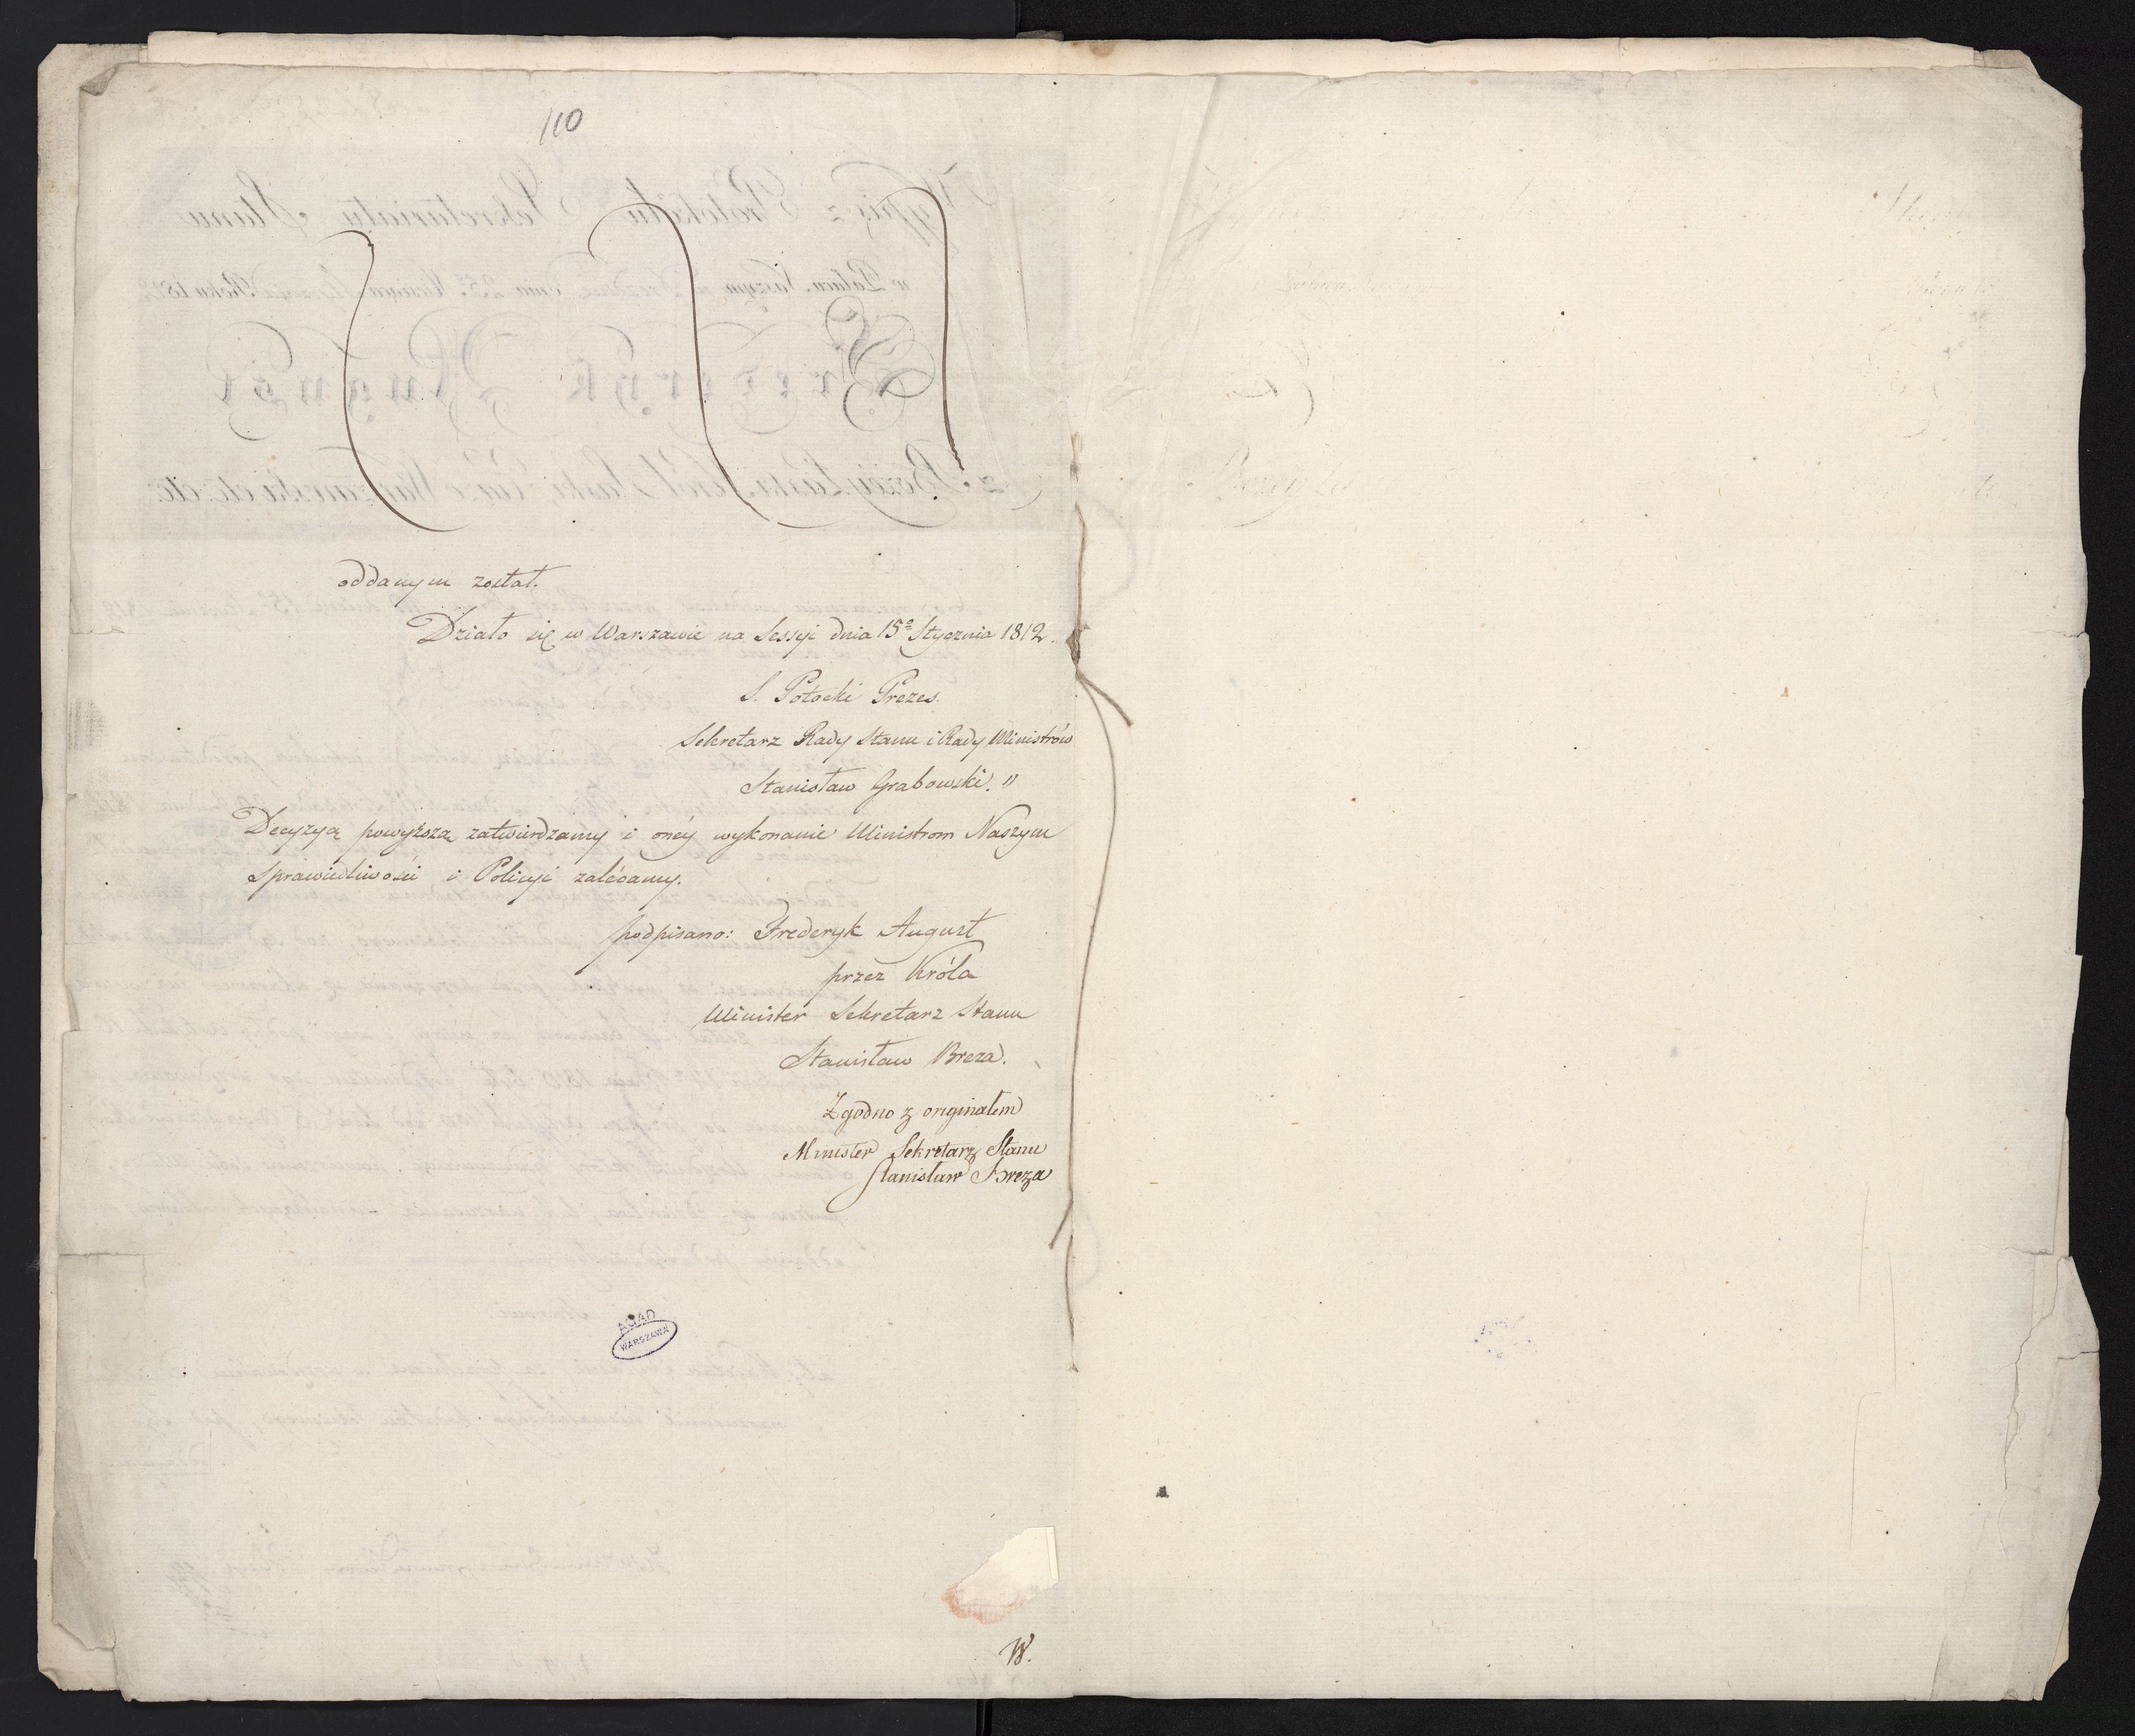 110
oddanym został.
Działo się w Warszawie na Sessyi dnia 15º Stycznia 1812.
S. Potocki Prezes.
Sekretarz Rady Stanu i Rady Ministrów
Stanisław Grabowski. "
Decyzyą powyższą zatwierdzamy i onéy wykonanie Ministrom Naszym
Sprawiedliwości i Policyi zalécamy.
podpisano: Frederyk August
przez Króla
Minister Sekretarz Stanu
Stanisław Breza.
Zgodno z originałem
Minister Sekretarz Stanu
Stanisław Breza
AGAD
WARSZAWA